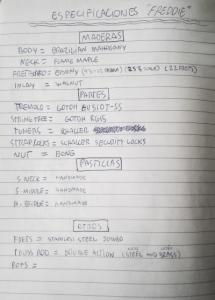 ESPECIFICACIONES "FREDDIE"
MADERAS
BODY = BRAZILIAN MAHOGANY
NECK = FLAME MAPLE
FRETBOARD = EBONY (25½ SCALE) (22 FRETS)
INLAY = WALNUT
PARTES
TREMOLO = GOTOH 510T-SS
STRING TREE = GOTOH RG15
TUNERS = SCHALLER
STRAPLOCKS = SCHALLER SECURITY LOCKS
NUT = BONE
PASTILLAS
S. NECK = HANDMADE
S. MIDDLE = HANDMADE
H. BRIDGE = HANDMADE
OTROS
FRETS = STAINLESS STEEL JUMBO
TRUSS ROD = DOUBLE ACTION (STEEL AND BRASS)
POTS =